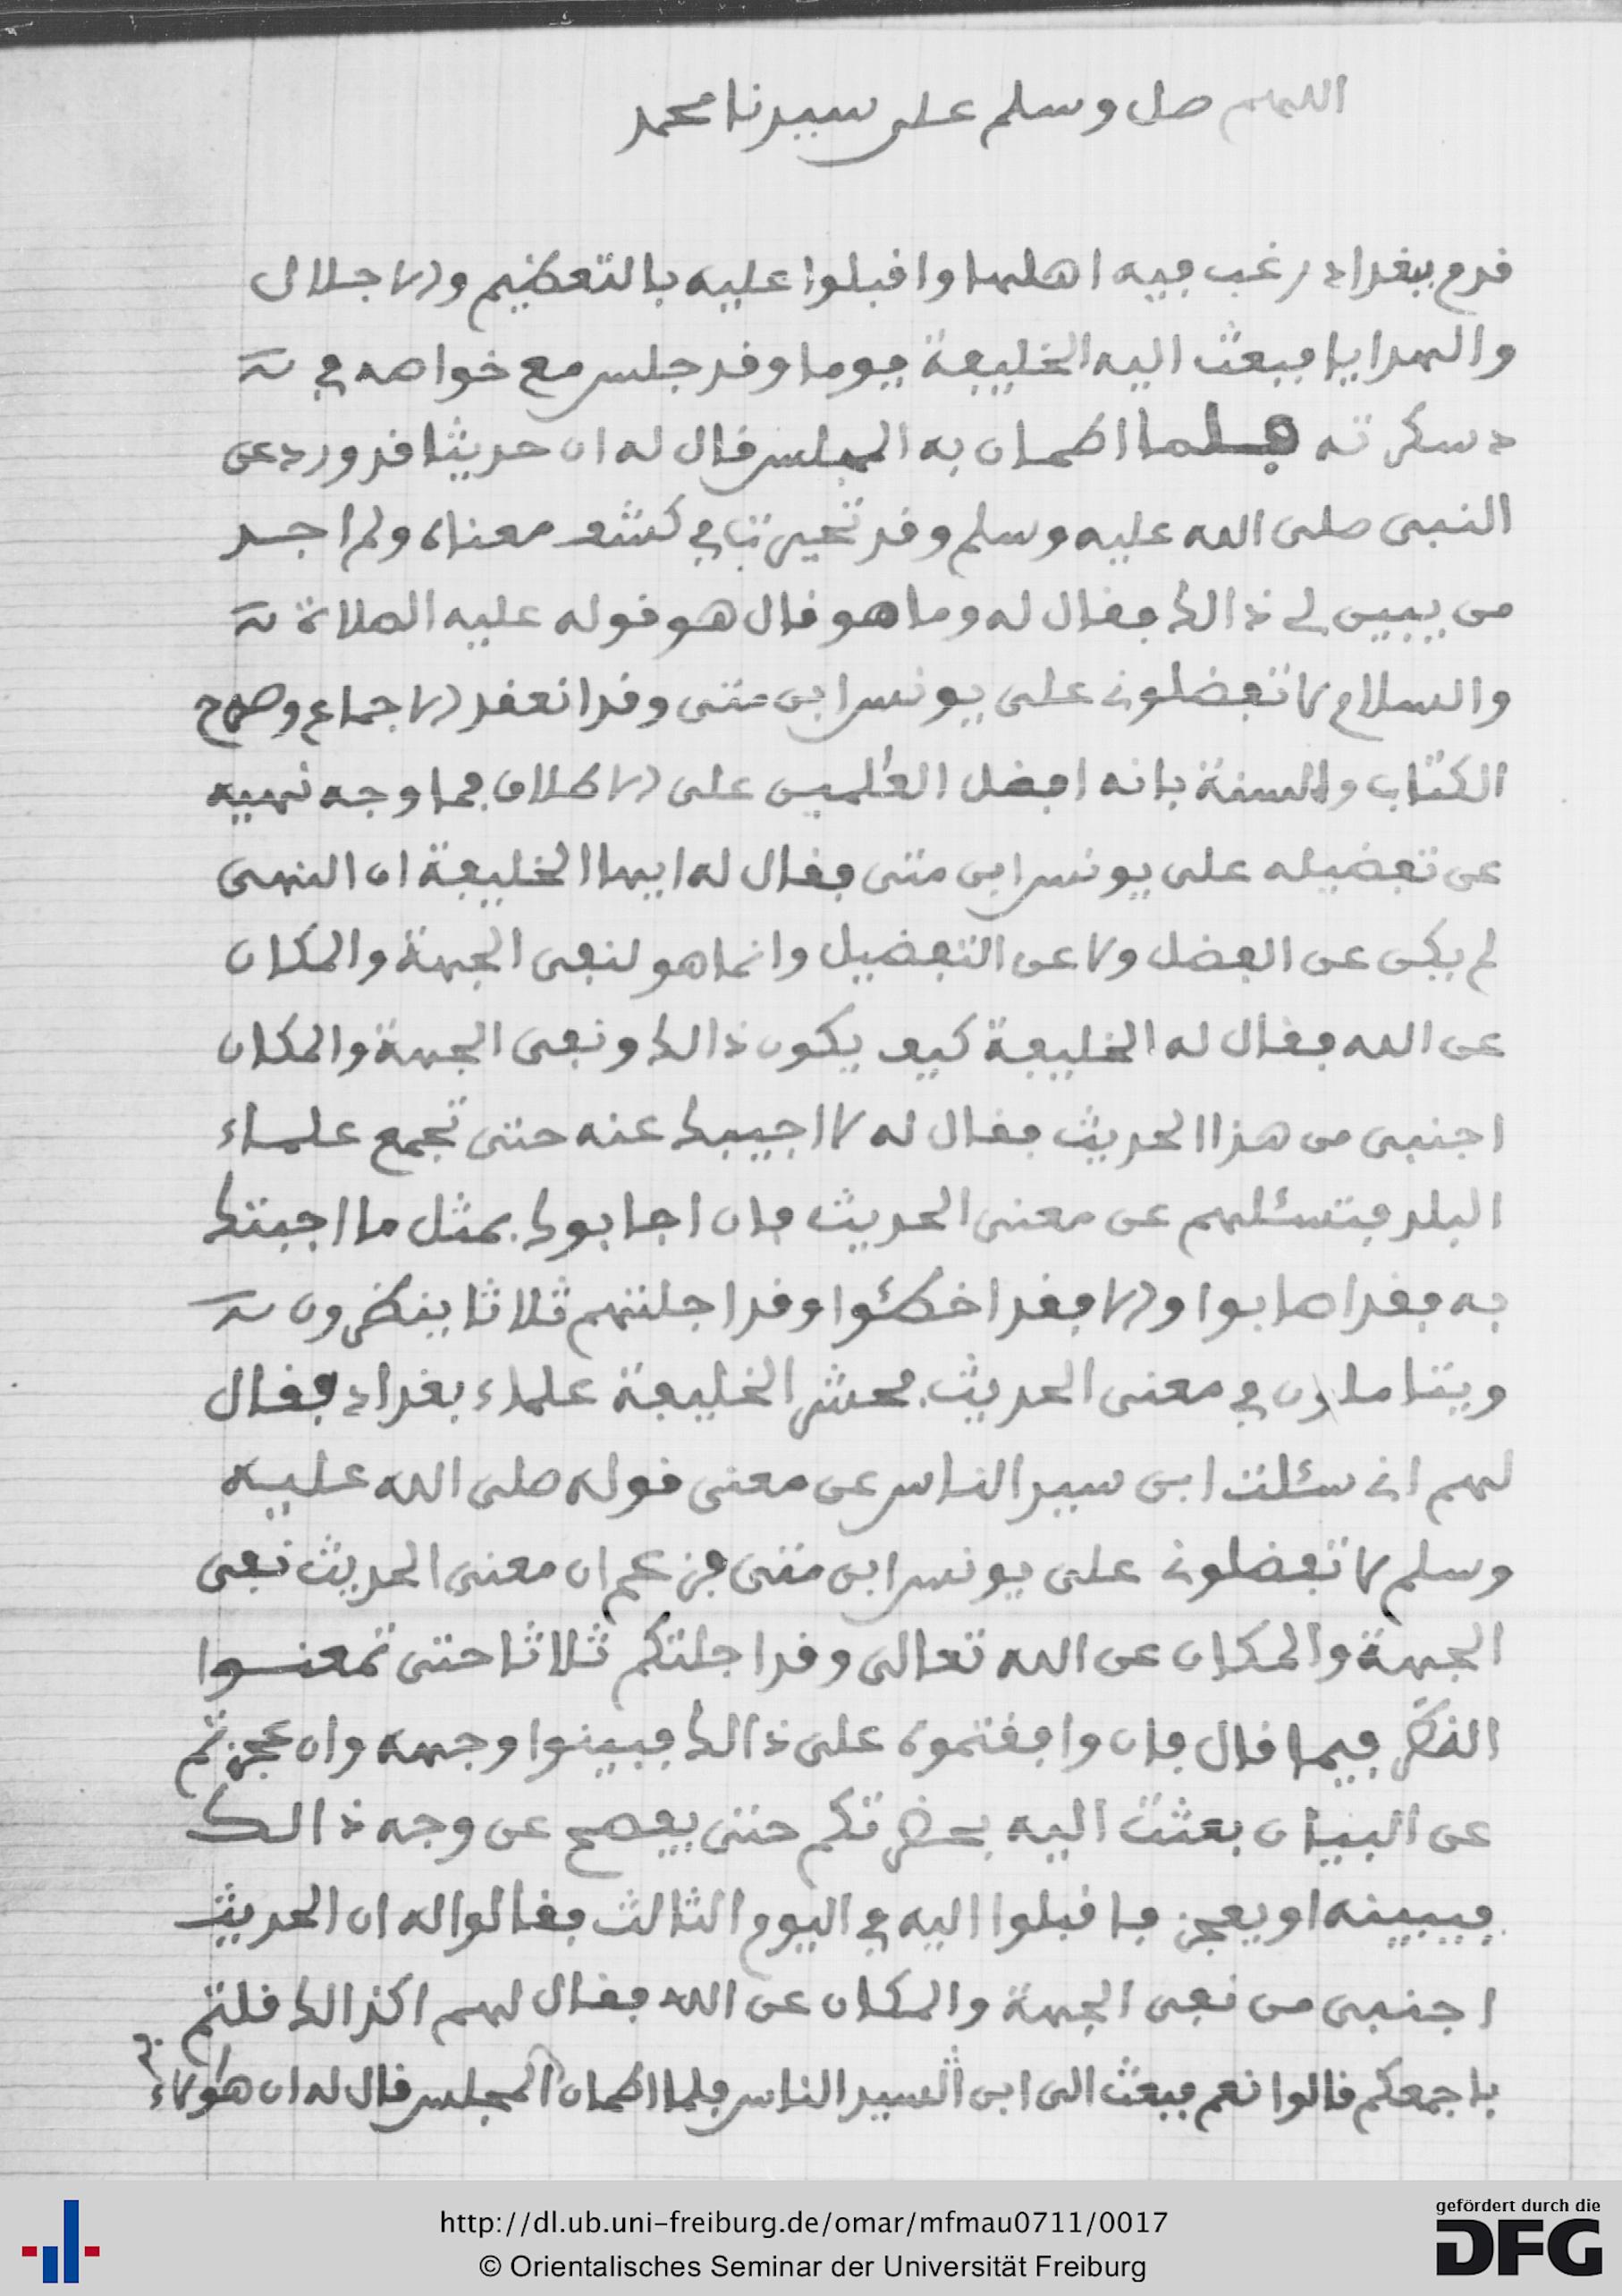 اللهم صل وسلم على سيدنا محمد
قدم ببغداد رغب فيه اهلها واقبلوا عليه بالتعظيم والاجلال
والهدايا فبعث اليه الخليفة يوما وقد جلس مع خواصه في
دسكرته فلما اطمان به المجلس قال له ان حديثا قد ورد عن
النبي صلى الله عليه وسلم وقد تحيرت في كشف معناه ولم اجد
من يبين لي ذالك فقال له وما هو قال هو قوله عليه الصلاة
والسلام لا تفضلوني على يونس ابن متى وقد انعقد الاجماع وصرح
الكتاب والسنة بانه افضل العلمين على الاطلاق فما وجه نهيه
عن تفضيله على يونس ابن متى فقال له ايها الخليفة ان النهي
لم يكن عن الفضل ولا عن التفضيل وانما هو لنفي الجهة والمكان
عن الله فقال له الخليفة كيف يكون ذالك ونفي الجهة والمكان
اجنبي من هذا الحديث فقال له لا اجيبك عنه حتى تجمع علماء
البلد فتسئلهم عن معنى الحديث فان اجابوك بمثل ما اجبتك
به فقد اصابوا والا فقد اخطئوا وقد اجلتهم ثلاثا ينظرون
ويتاملون في معنى الحديث فحشر الخليفة علماء بغداد فقال
لهم اني سئلت ابن سيد الناس عن معنى قوله صلى الله عليه
وسلم لا تفضلوني على يونس ابن متى فزعم ان معنى الحديث نفي
الجهة والمكان عن الله تعالى وقد اجلتكم ثلاثا حتى تمعنوا
النظر فيما قال فان وافقتموه على ذالك فبينوا وجهه وان عجزتم
عن البيان بعثت اليه بحضرتكم حتى يفصح عن وجه ذالك
فيبينه او يعجز فاقبلوا اليه في اليوم الثالث فقالوا له ان الحديث
اجنبي من نفي الجهة والمكان عن الله فقال لهم اكذالك قلتم
باجمعكم قالوا نعم فبعث الى ابن السيد الناس فلما اطمان المجلس قال له ان هؤلاء
http://dl.ub.uni-freiburg.de/omar/mfmau0711/0017
© Orientalisches Seminar der Universität Freiburg
gefördert durch die
DFG